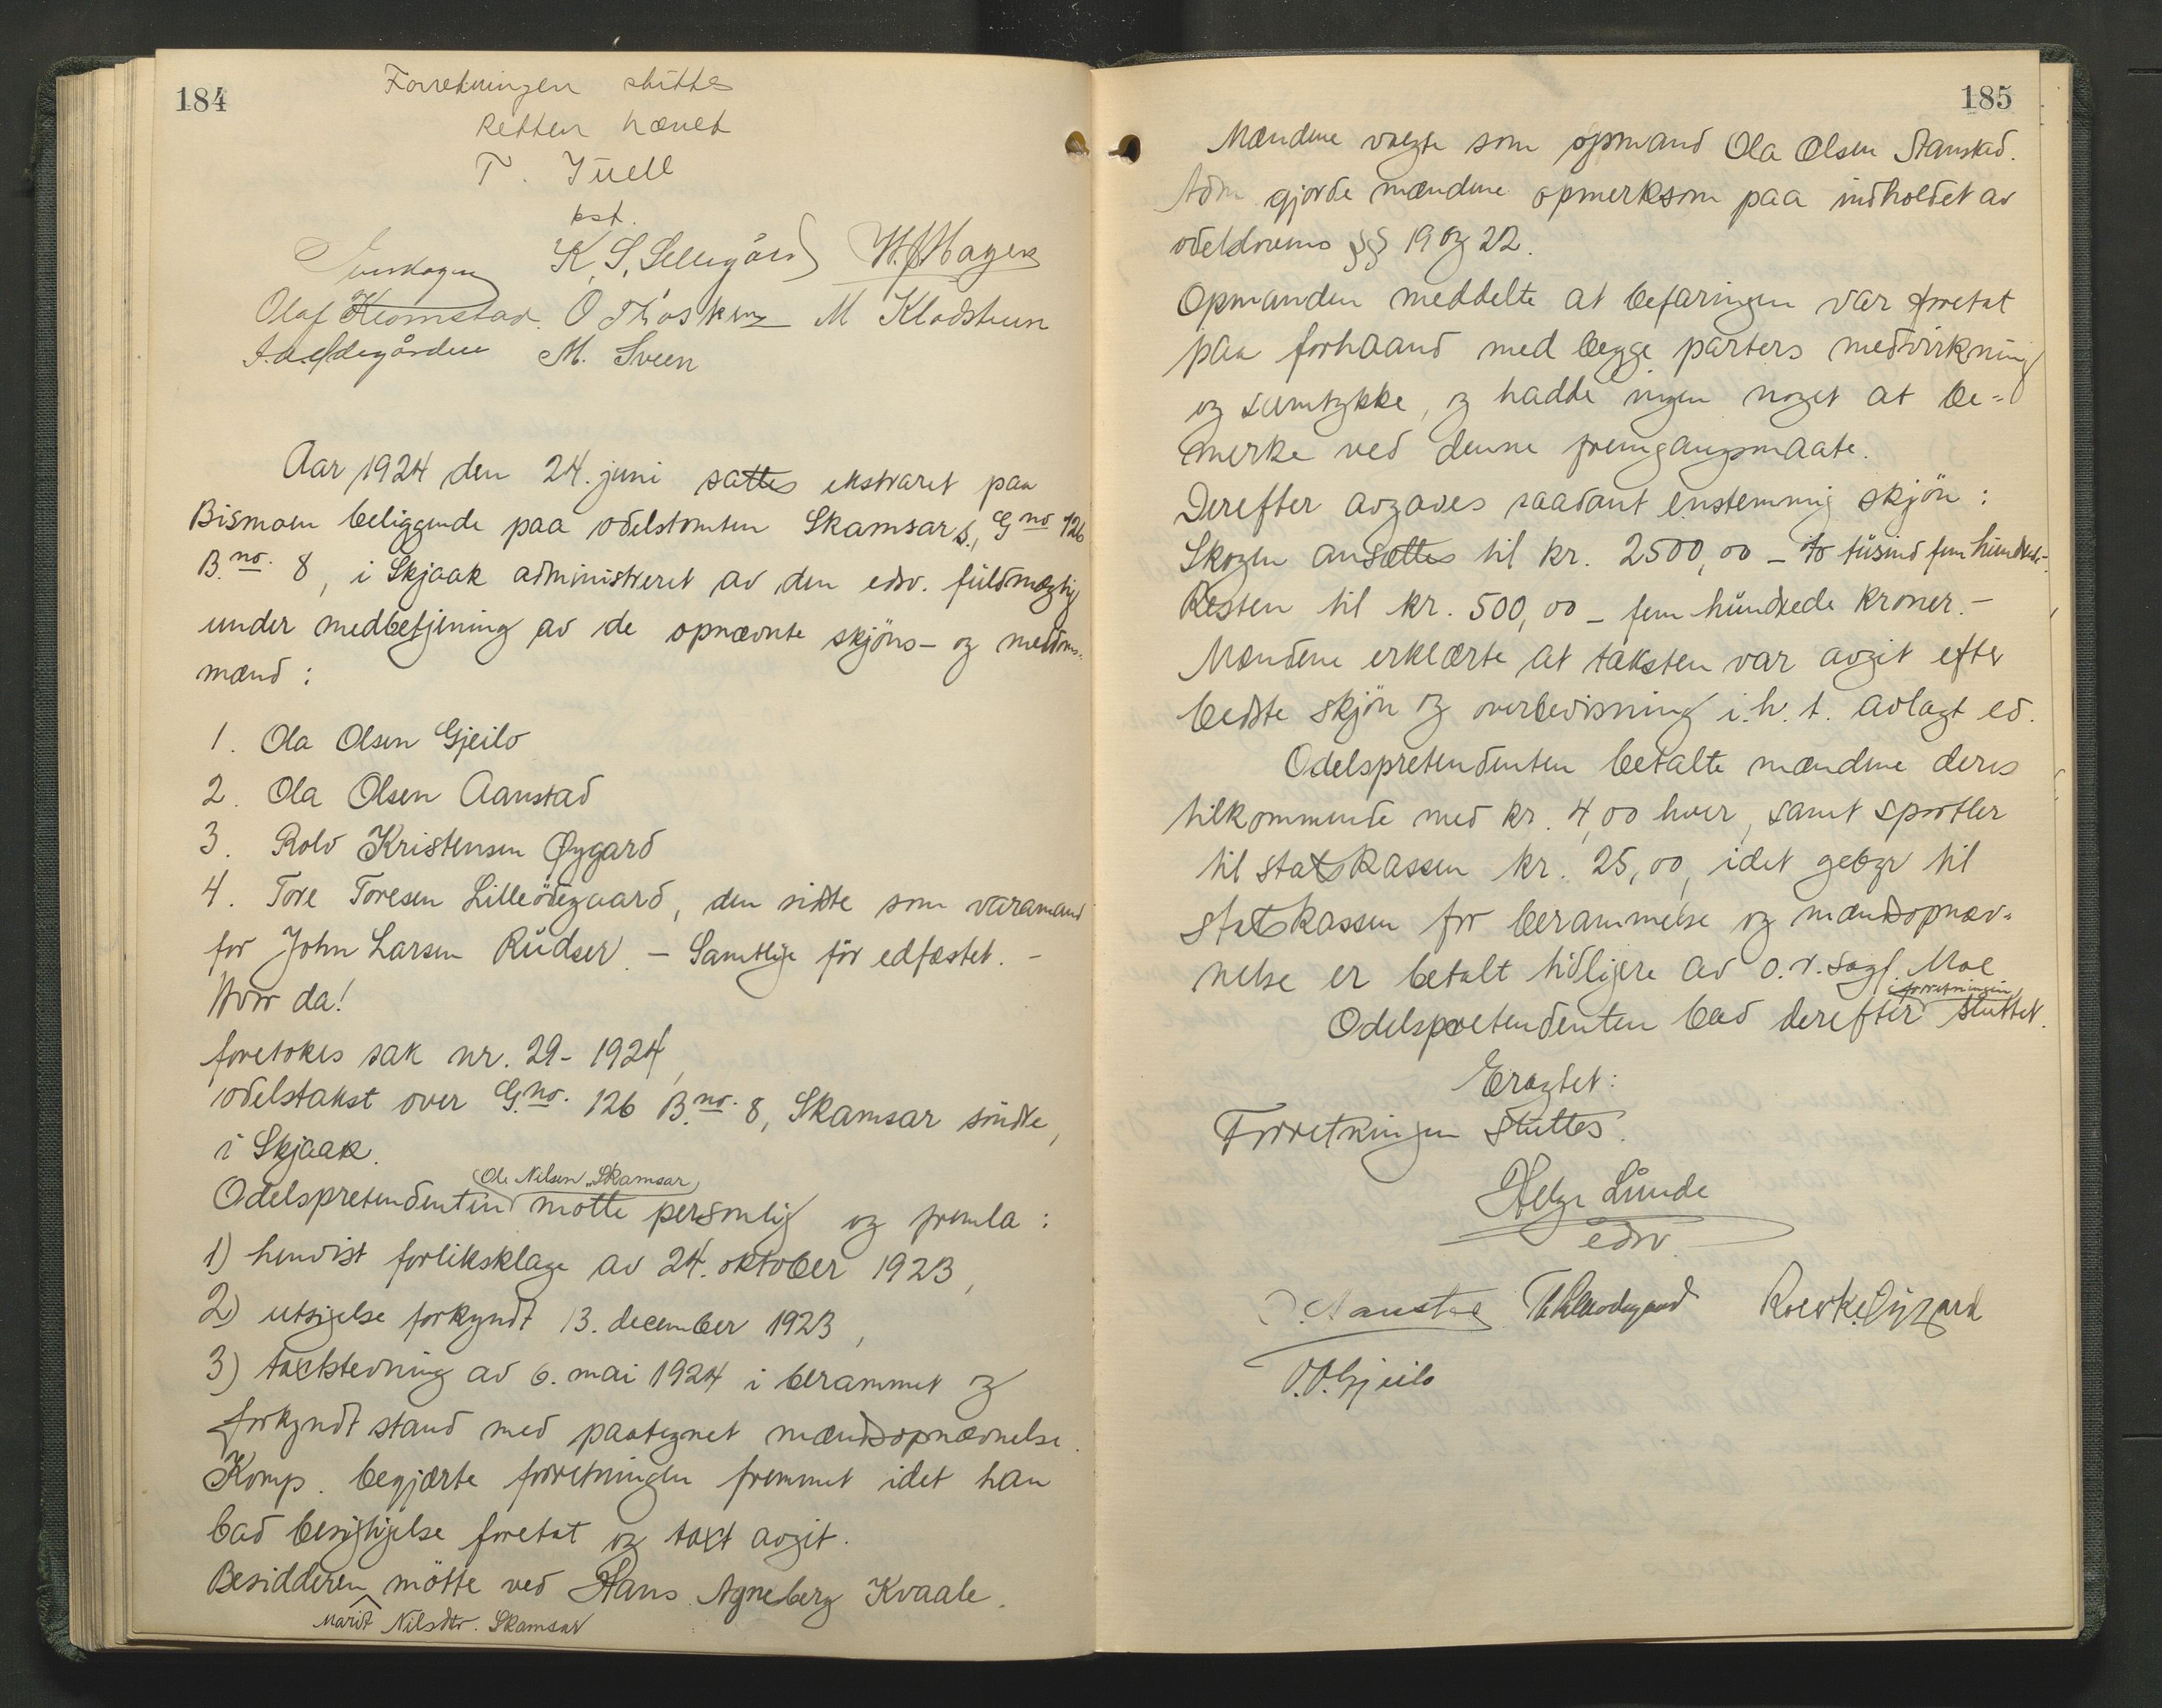 184
Forretningen sluttes
Retten hævet
T. Juell
kst.
K. S. Selsgård
Olaf Kromstad. O T Fosker M Kladsteen
M. Sveen
Aar 1924 den 24. juni sattes ekstraret paa
Bismoen beliggende paa odelstomten Skamsar s., G no 126
B. no. 8, i Skjaak administreret av den edsv. fuldmægtig
under medbetjening av de opnævnte skjöns- og meddoms-
mænd:
1. Ola Olsen Gjeilo
2. Ola Olsen Aanstad
3. Rolv Kristensen Øygard
4. Tore Toresen Lilleödegaard, den sidste som varamand
for John Larsen Rudser. - Samtlige för edfæstet. -
Hvor da!
foretokes sak nr. 29-1924,
odelstakst over G. no. 126 B. no. 8, Skamsar söndre,
i Skjaak.
Odelspretendenten Ole Nilsen Skamsar mötte personlig og fremla:
1) henvist forliksklage av 24. oktober 1923,
2) utsigelse forkyndt 13. december 1923,
3) takststevning av 6. mai 1924 i berammet og
forkyndt stand med paategnet mændsopnævnelse.
Komp. begjærte forretningen fremmet idet han
bad besigtigelse foretat og taxt avgit.
Besidderen Marit Nilsdtr. Skamsar mötte ved Hans Agneberg Kvaale.
185
Mændene valgte som opmand Ola Olsen Aanstad.
Adm. gjorde mændene opmerksom paa indholdet av
odelslovens §§ 19 og 22.
Opmanden meddelte at befaringen var foretat
paa forhaand med begge parters medvirkning
og samtykke, og hadde ingen noget at be-
merke ved denne fremgangsmaate.
Derefter avgaves saadant enstemmig skjön:
Skogen ansættes til kr. 2500,00 - to tusind fem hundrede-.
Resten til kr. 500,00 - fem hundrede kroner. -
Mændene erklærte at taksten var avgit efter
bedste skjön og overbevisning i. h. t. avlagt ed.
Odelspretendenten betalte mændene deres
tilkommende med kr. 4,00 hver, samt sportler
til statskassen kr. 25,00, idet gebyr til
statskassen for berammelse og mændsopnæv-
nelse er betalt tidligere av o. r. sagf. Moe
Odelspretendenten bad derefter forretningen sluttet.
Eragtet:
Forretningen sluttes.
Helge Lunde
edsv.
O. Aanstad T Lilleødegaard Rolv K. Øygard
O. O. Gjeilo